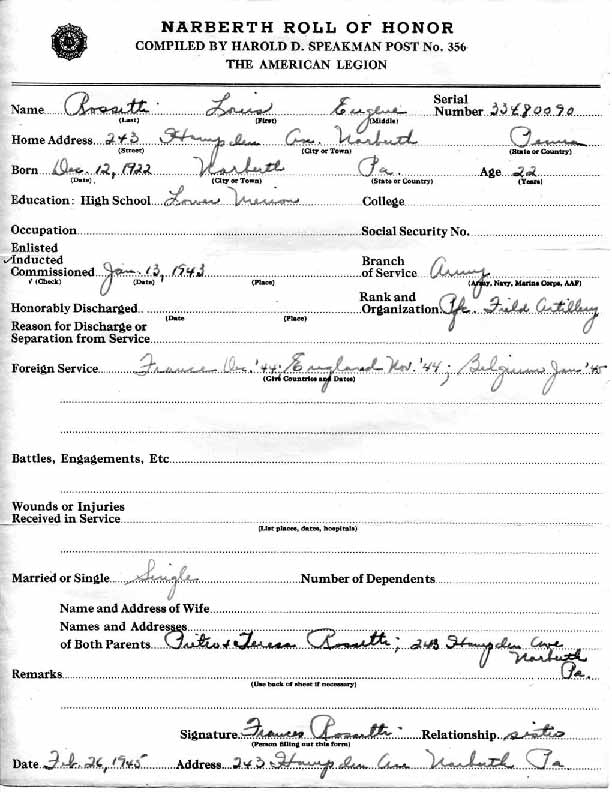 NARBERTH ROLL OF HONOR
COMPILED BY HAROLD D. SPEAKMAN POST No. 356
THE AMERICAN LEGION
Name Rossetti Louis Eugene Serial Number 33680090
(Last) (First) (Middle)
Home Address 243 Hampden Ave. Narberth Penna
(Street) (City or Town) (State or Country)
Born Dec. 12, 1922 Narberth Pa. Age 22
(Date) (City or Town) (State or Country) (Years)
Education: High School Lower Merion College
Occupation Social Security No.
Enlisted
✓Inducted Branch
Commissioned Jan. 13, 1943 of Service Army
√ (Check) (Date) (Place) (Army, Navy, Marine Corps, AAF)
Rank and
Honorably Discharged Organization Pfc. Field Artillery
(Date (Place)
Reason for Discharge or
Separation from Service
Foreign Service France Dec. '44; England Nov. '44; Belgium Jan '45
(Give Countries and Dates)
Battles, Engagements, Etc
Wounds or Injuries
Received in Service
(List places, dates, hospitals)
Married or Single Single Number of Dependents
Name and Address of Wife
Names and Addresses
of Both Parents Pietro & Teresa Rossetti; 243 Hampden Ave
Narberth
Pa.
Remarks
(Use back of sheet if necessary)
Signature Frances Rossetti Relationship sister
(Person filling out this form)
Date Feb. 26, 1945 Address 243 Hampden Ave Narberth Pa